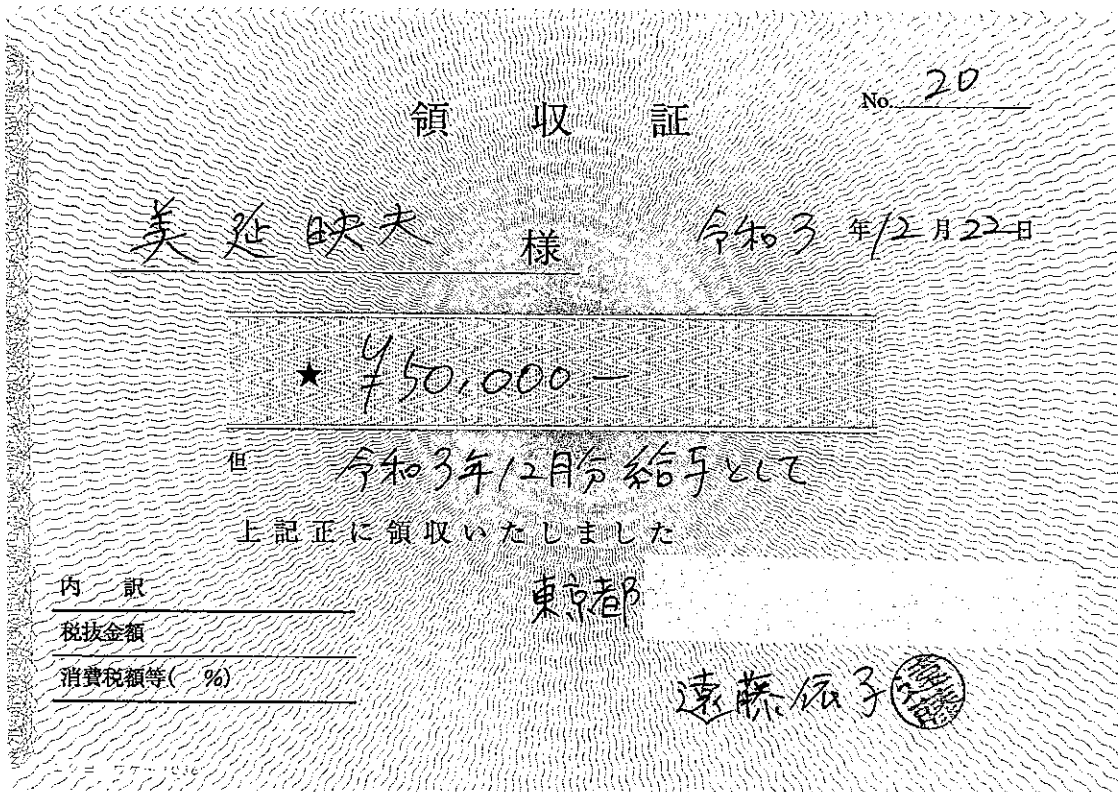 No. 20
領収証
美延映夫 様
令和3年12月22日
★ ¥50,000-
但 令和3年12月分給与として
上記正に領収いたしました
内訳
税抜金額
消費税額等( %)
東京都
遠藤依子